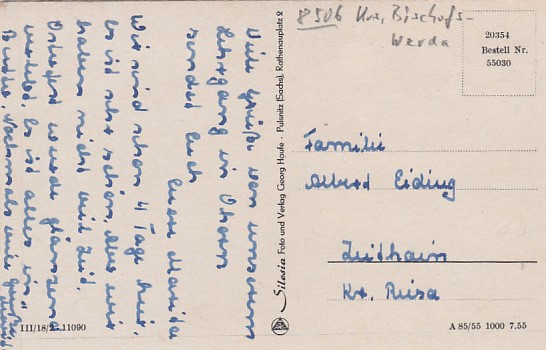 8506 Krs. Bischofs-
Werda
20354
Bestell Nr.
55030
Viele Grüße von unserem
Lehrgang in Ohorn
sendet Euch
Eure Marita
Wir sind schon 4 Tage hier.
Es ist sehr schön. Aber wir
haben nicht viel Zeit.
wurde glänzend
Es ist alles in
Butter. Nochmals viele Grüße
Silesia Foto und Verlag Georg Haufe · Pulsnitz (Sachs), Rathenauplatz 2
Familie
Albert Eiding
Zeithain
Kr. Riesa
III/18/2 11090
A 85/55 1000 7.55